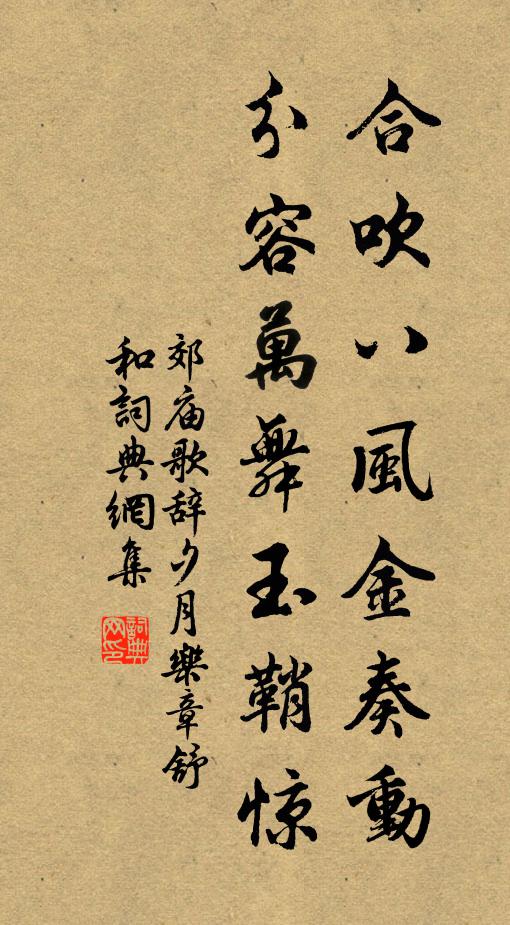 合吹八風金奏動
分容萬舞玉鞘惊
郊庙歌辞夕月樂章舒
和詞典網集
詞典
网印